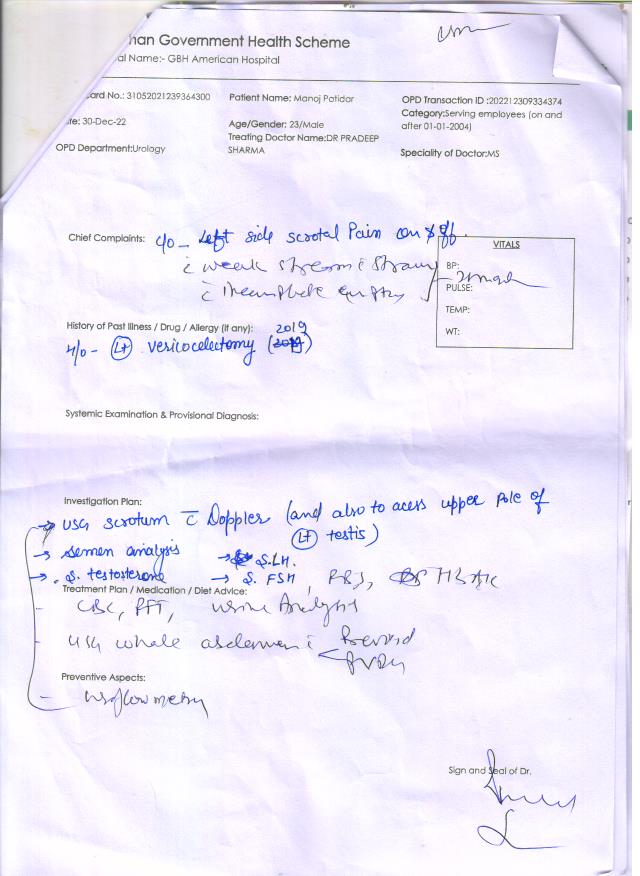 han Government Health Scheme
al Name:- GBH American Hospital
ard No.: 31052021239364300
Patient Name: Manoj Patidar
OPD Transaction ID :202212309334374
Category:Serving employees (on and after 01-01-2004)
te: 30-Dec-22
Age/Gender: 23/Male
Treating Doctor Name:DR PRADEEP SHARMA
OPD Department:Urology
Speciality of Doctor:MS
Chief Complaints: c/o - Left side scrotal Pain on & off.
c̄ weak stream c̄
c̄
VITALS
BP:
PULSE:
TEMP:
WT:
History of Past Illness / Drug / Allergy (if any): 2019
H/o - Lt vericocelectomy
Systemic Examination & Provisional Diagnosis:
Investigation Plan:
→ USG scrotum c̄ Doppler (and also to acess upper pole of
Lt testis)
→ semen analysis → S.LH.
→ S. testosterone → S. FSH,
Treatment Plan / Medication / Diet Advice:
- CBC, urine Analysis
- USG whole c̄
Preventive Aspects:
- uroflowmetry
Sign and Seal of Dr.